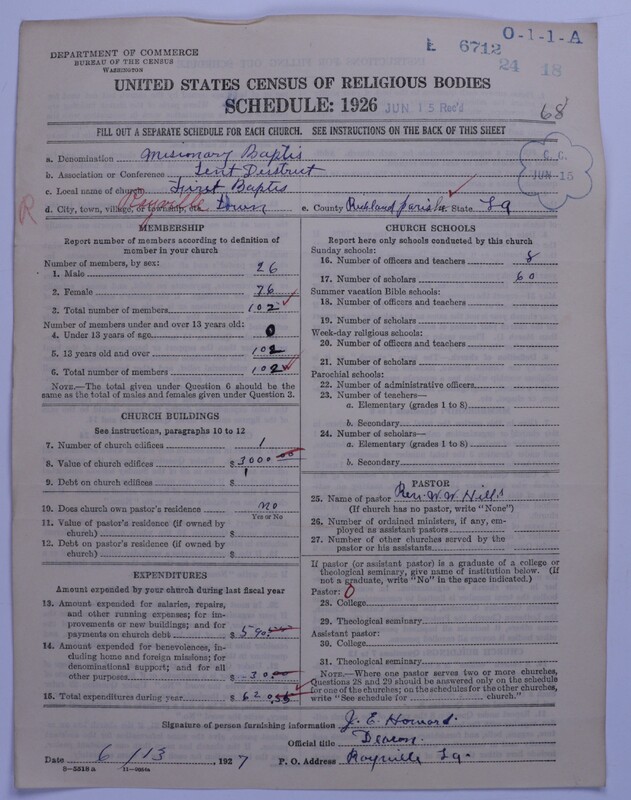 O-1-1-A
E 6712
24 18
DEPARTMENT OF COMMERCE
BUREAU OF THE CENSUS
WASHINGTON
UNITED STATES CENSUS OF RELIGIOUS BODIES
SCHEDULE: 1926
JUN 15 Rec'd
68
FILL OUT A SEPARATE SCHEDULE FOR EACH CHURCH. SEE INSTRUCTIONS ON THE BACK OF THIS SHEET
C. C.
JUN 15
a. Denomination Misionary Baptis
b. Association or Conference Tent Distruct
c. Local name of church First Baptis
d. City, town, village, or township, etc. Rayville town e. County Richland parish State La
R
MEMBERSHIP
Report number of members according to definition of member in your church
Number of members, by sex:
1. Male 26
2. Female 76
3. Total number of members 102
Number of members under and over 13 years old:
4. Under 13 years of age 0
5. 13 years old and over 102
6. Total number of members 102
NOTE.—The total given under Question 6 should be the same as the total of males and females given under Question 3.
CHURCH BUILDINGS
See instructions, paragraphs 10 to 12
7. Number of church edifices 1
8. Value of church edifices $ 3000 00
9. Debt on church edifices $
10. Does church own pastor's residence no
Yes or No
11. Value of pastor's residence (if owned by church) $
12. Debt on pastor's residence (if owned by church) $
EXPENDITURES
Amount expended by your church during last fiscal year
13. Amount expended for salaries, repairs, and other running expenses; for improvements or new buildings; and for payments on church debt $ 590
14. Amount expended for benevolences, including home and foreign missions; for denominational support; and for all other purposes $ 30
15. Total expenditures during year $ 620
CHURCH SCHOOLS
Report here only schools conducted by this church
Sunday schools:
16. Number of officers and teachers 8
17. Number of scholars 60
Summer vacation Bible schools:
18. Number of officers and teachers
19. Number of scholars
Week-day religious schools:
20. Number of officers and teachers
21. Number of scholars
Parochial schools:
22. Number of administrative officers
23. Number of teachers—
a. Elementary (grades 1 to 8)
b. Secondary
24. Number of scholars—
a. Elementary (grades 1 to 8)
b. Secondary
PASTOR
25. Name of pastor Rev. W. W. Hills
(If church has no pastor, write "None")
26. Number of ordained ministers, if any, employed as assistant pastors
27. Number of other churches served by the pastor or his assistants
If pastor (or assistant pastor) is a graduate of a college or theological seminary, give name of institution below. (If not a graduate, write "No" in the space indicated.)
Pastor: 0
28. College
29. Theological seminary
Assistant pastor:
30. College
31. Theological seminary
NOTE.—Where one pastor serves two or more churches, Questions 28 and 29 should be answered only on the schedule for one of the churches; on the schedules for the other churches, write "See schedule for church."
Signature of person furnishing information J. E. Homord.
Official title Deacon.
Date 6/13, 1927 P. O. Address Rayville La.
8-5518 a